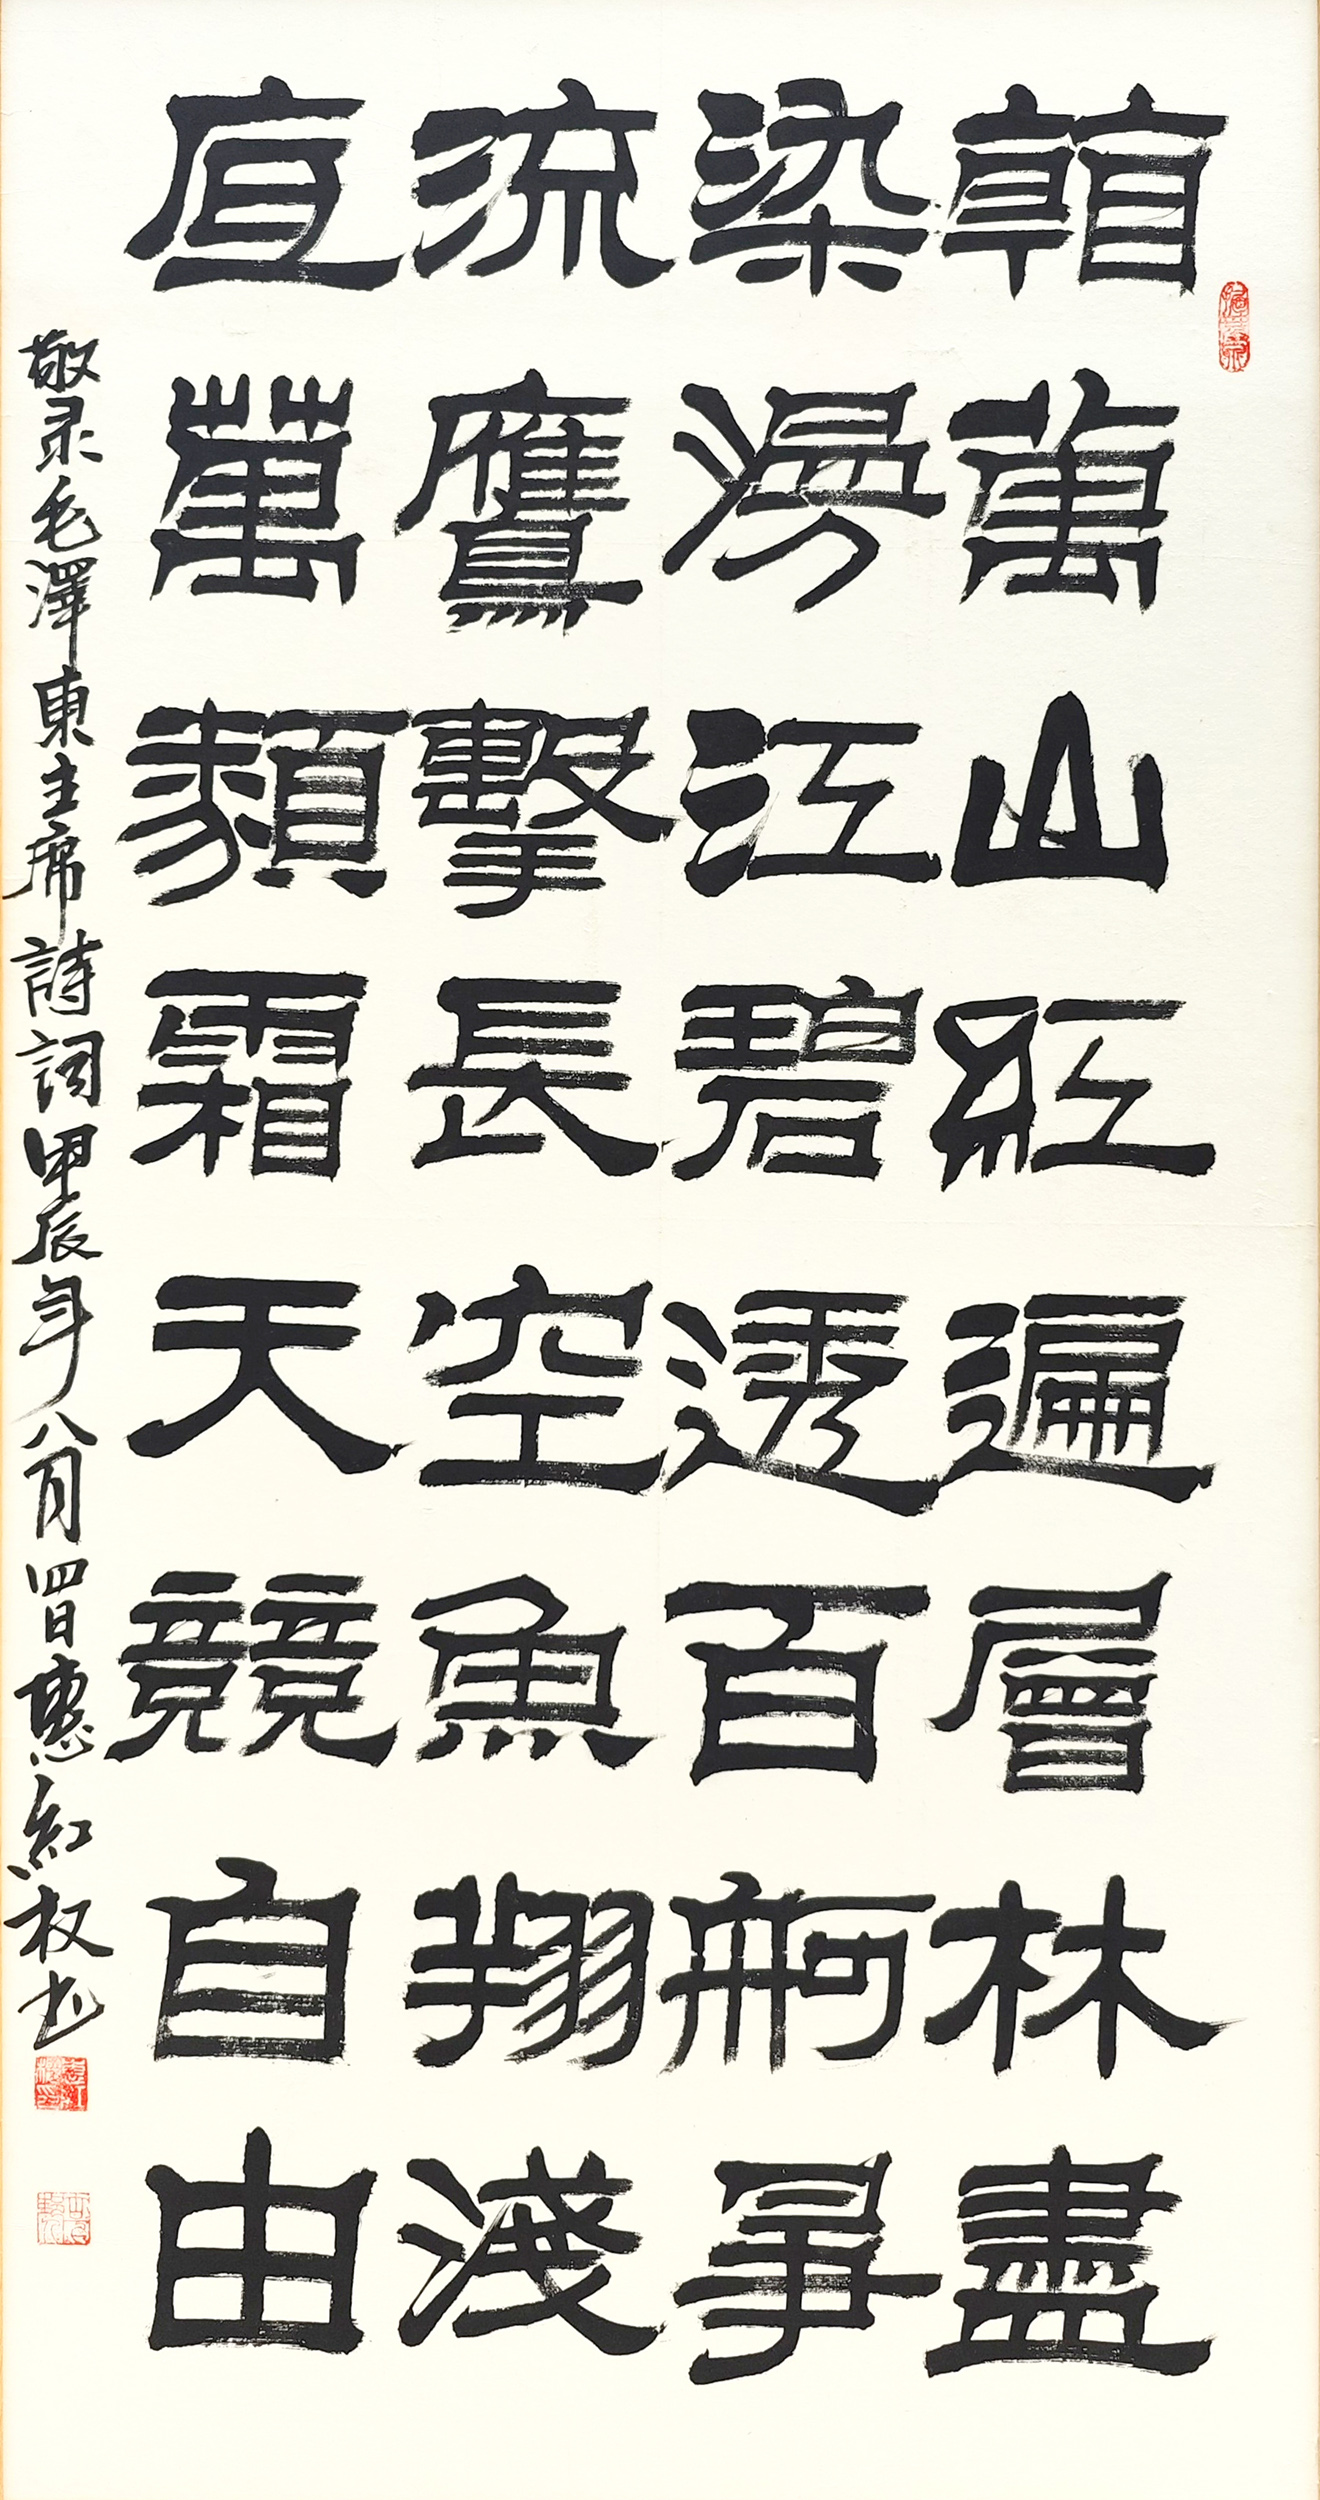 䪞萬山紅遍層林盡
染漫江碧透百舸爭
流鷹擊長空魚翔淺
底萬類霜天競自由
敬录毛澤東主席詩詞甲辰年八月四日惠紅权书